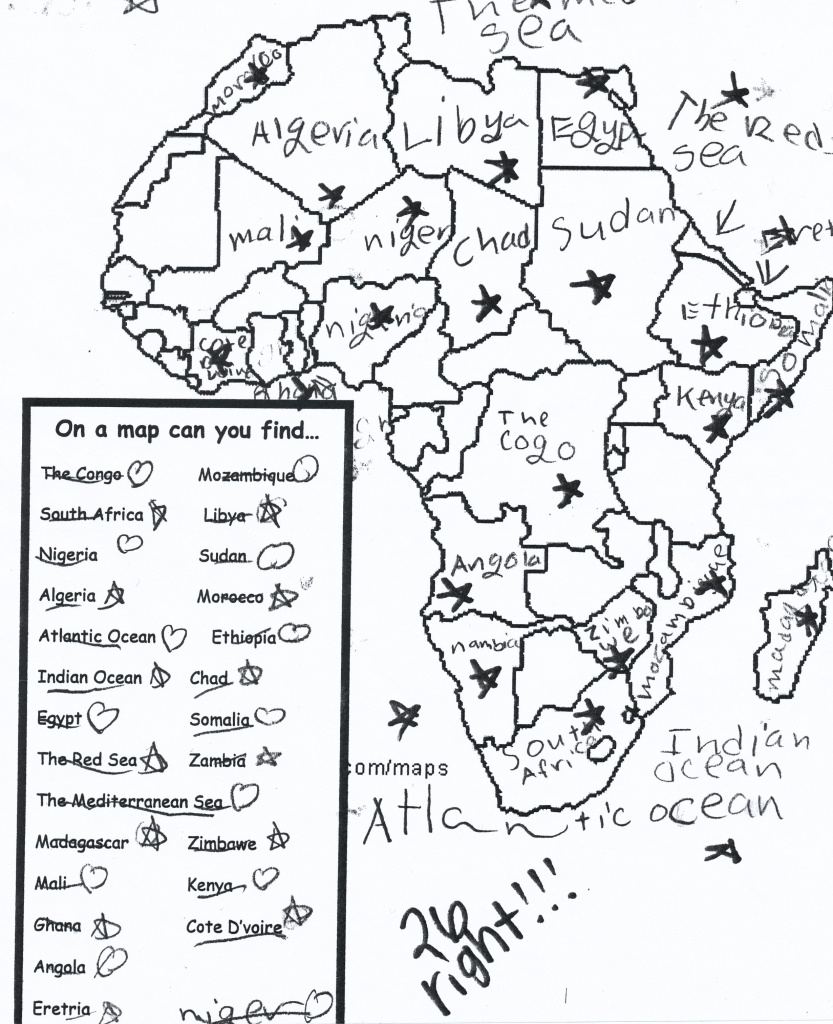 The
sea
Morocco
Algeria
Libya
Egypt
The Red
sea
mali
niger
Chad
Sudan
Ethiopia
nigeria
cote
Ghana
Kenya
Somalia
The
Cogo
Angola
nambia
Zimbabwe
mozambique
madagascar
South
Africa
Indian
ocean
com/maps
Atlantic ocean
26
right!!!
On a map can you find...
The Congo Mozambique
South Africa Libya
Nigeria Sudan
Algeria Morocco
Atlantic Ocean Ethiopia
Indian Ocean Chad
Egypt Somalia
The Red Sea Zambia
The Mediterranean Sea
Madagascar Zimbawe
Mali Kenya
Ghana Cote D'voire
Angola
Eretria niger